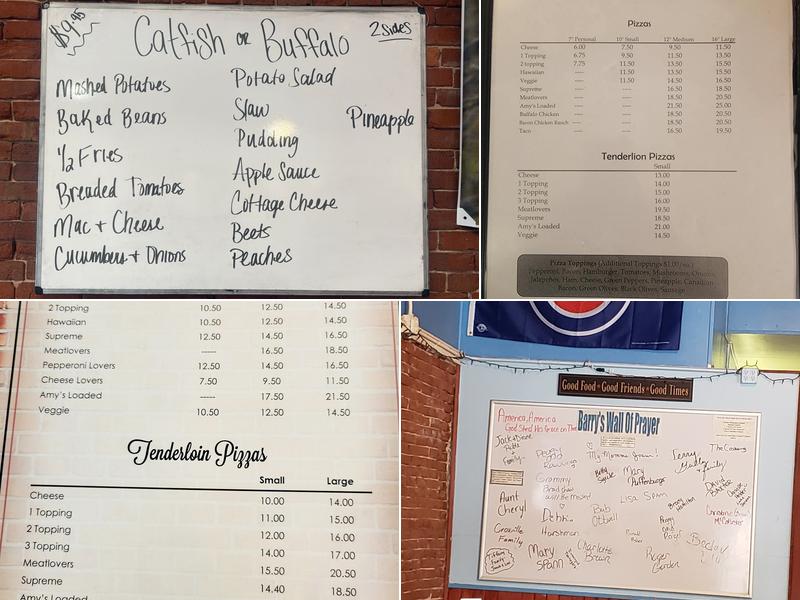 $9.95
Catfish or Buffalo
2 sides
Mashed Potatoes
Baked Beans
1/2 Fries
Breaded Tomatoes
Mac + Cheese
Cucumbers + Onions
Potato Salad
Slaw
Pudding
Apple Sauce
Cottage Cheese
Beets
Peaches
Pineapple
Pizzas
7" Personal 10" Small 12" Medium 16" Large
Cheese 6.00 7.50 9.50 11.50
1 Topping 6.75 9.50 11.50 13.50
2 topping 7.75 11.50 13.50 15.50
Hawaiian ---- 11.50 13.50 15.50
Veggie ---- 11.50 14.50 16.50
Supreme ---- ---- 16.50 18.50
Meatlovers ---- ---- 18.50 20.50
Amy's Loaded ---- ---- 21.50 25.00
Buffalo Chicken ---- ---- 18.50 20.50
Bacon Chicken Ranch ---- ---- 18.50 20.50
Taco ---- ---- 16.50 19.50
Tenderlion Pizzas
Small
Cheese 13.00
1 Topping 14.00
2 Topping 15.00
3 Topping 16.00
Meatlovers 19.50
Supreme 18.50
Amy's Loaded 21.00
Veggie 14.50
Pizza Toppings (Additional Toppings $1.00/ea)
Pepperoni, Bacon, Hamburger, Tomatoes, Mushrooms, Onions,
Jalapeños, Ham, Cheese, Green Peppers, Pineapple, Canadian
Bacon, Green Olives, Black Olives, Sausage
2 Topping 10.50 12.50 14.50
Hawaiian 10.50 12.50 14.50
Supreme 12.50 14.50 16.50
Meatlovers ------ 16.50 18.50
Pepperoni Lovers 12.50 14.50 16.50
Cheese Lovers 7.50 9.50 11.50
Amy's Loaded ----- 17.50 21.50
Veggie 10.50 12.50 14.50
Tenderloin Pizzas
Small Large
Cheese 10.00 14.00
1 Topping 11.00 15.00
2 Topping 12.00 16.00
3 Topping 14.00 17.00
Meatlovers 15.50 20.50
Supreme 14.40 18.50
Amy's Loaded
Good Food Good Friends Good Times
America, America
God Shed His Grace on Thee
Barry's Wall Of Prayer
Jack & Diane
Family
My Momma
Terry
Family
Mary
Puffenbarger
Grammy
will be missed
Lisa Spann
Aunt
Cheryl
Debbi
Bob
Family
Harshman
Mary
Spann
Charlotte
Brown
Roger